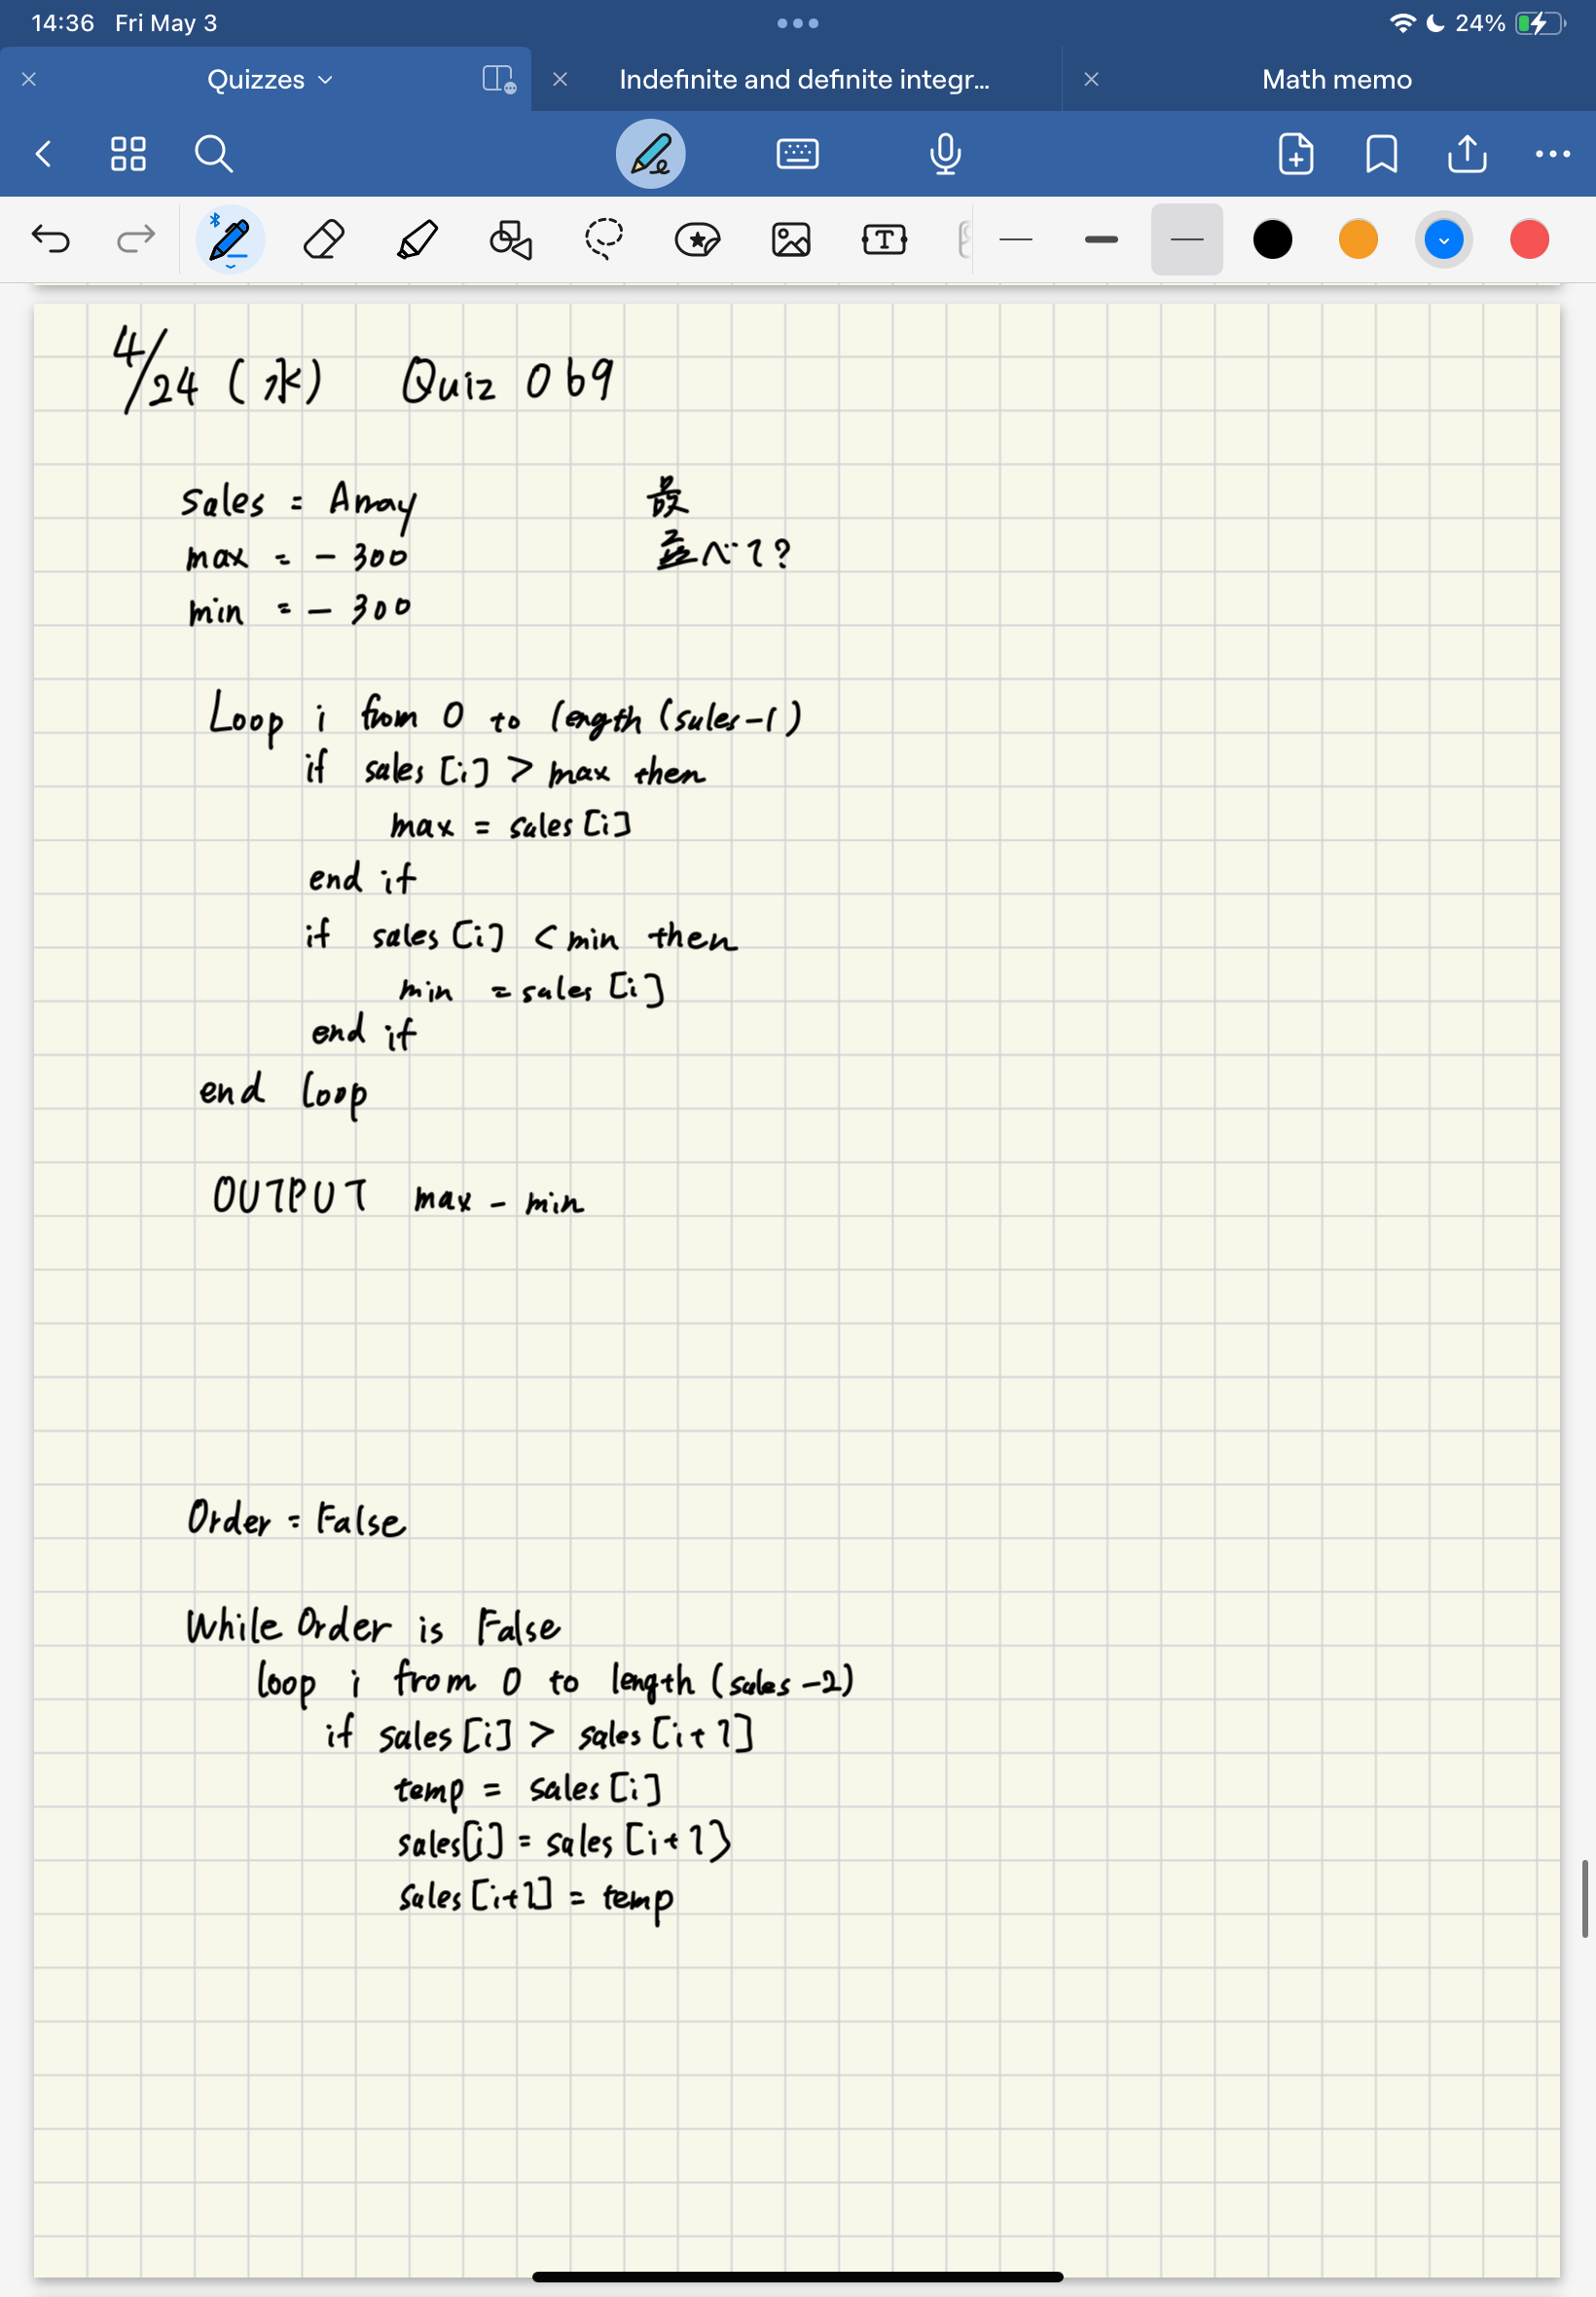 14:36 Fri May 3 24%
Quizzes Indefinite and definite integr... Math memo
4/24 (水) Quiz 069
sales = Array 最
max = -300 並べて?
min = -300
Loop i from 0 to length (sales-1)
if sales [i] > max then
max = sales [i]
end if
if sales [i] < min then
min = sales [i]
end if
end loop
OUTPUT max - min
Order = False
While Order is False
loop i from 0 to length (sales -2)
if sales [i] > sales [i+1]
temp = sales [i]
sales[i] = sales [i+1]
sales [i+1] = temp